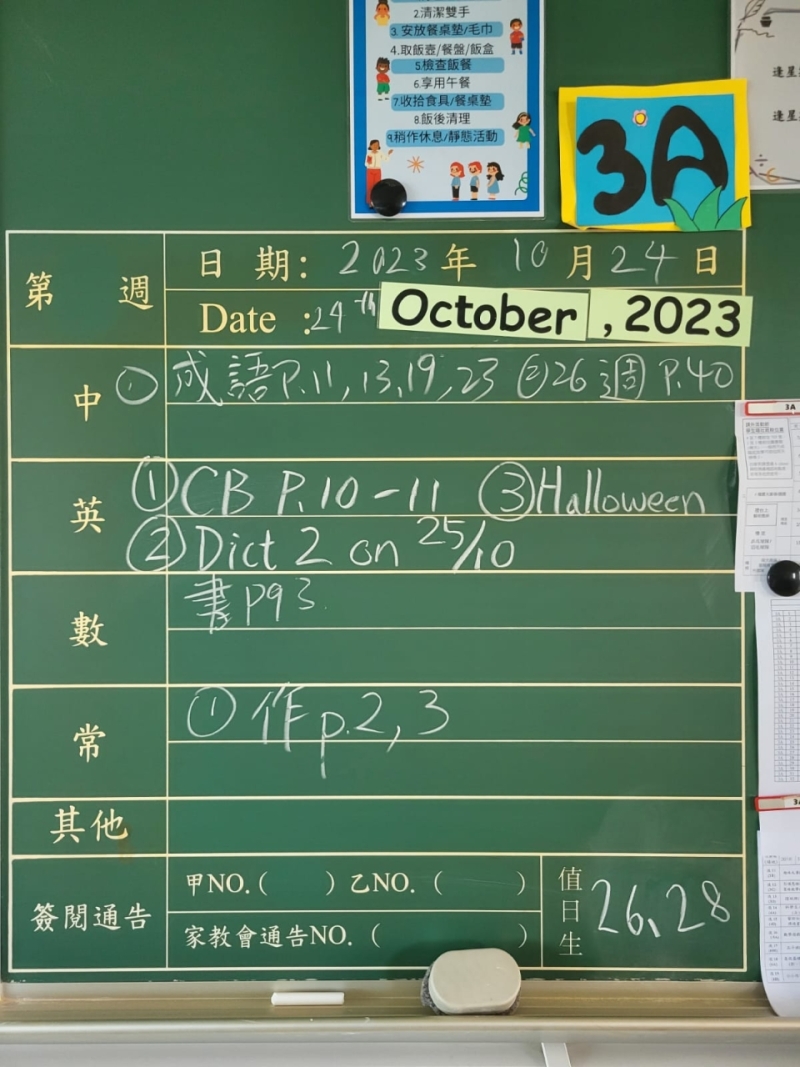 2.清潔雙手
3.安放餐桌墊/毛巾
4.取飯壺/餐盤/飯盒
5.檢查飯餐
6.享用午餐
7.收拾食具/餐桌墊
8.飯後清理
9.稍作休息/靜態活動
3A
逢星
逢星
第 週
日 期: 2023 年 10 月 24 日
Date :24th October , 2023
中 ① 成語P.11,13,19,23 ②26週 P.40
英 ①CB P.10-11 ③Halloween
②Dict 2 on 25/10
數 書P93.
常 ① 作p.2,3
其他
簽閱通告 甲NO.( ) 乙NO. ( )
家教會通告NO. ( )
值日生 26、28
3A